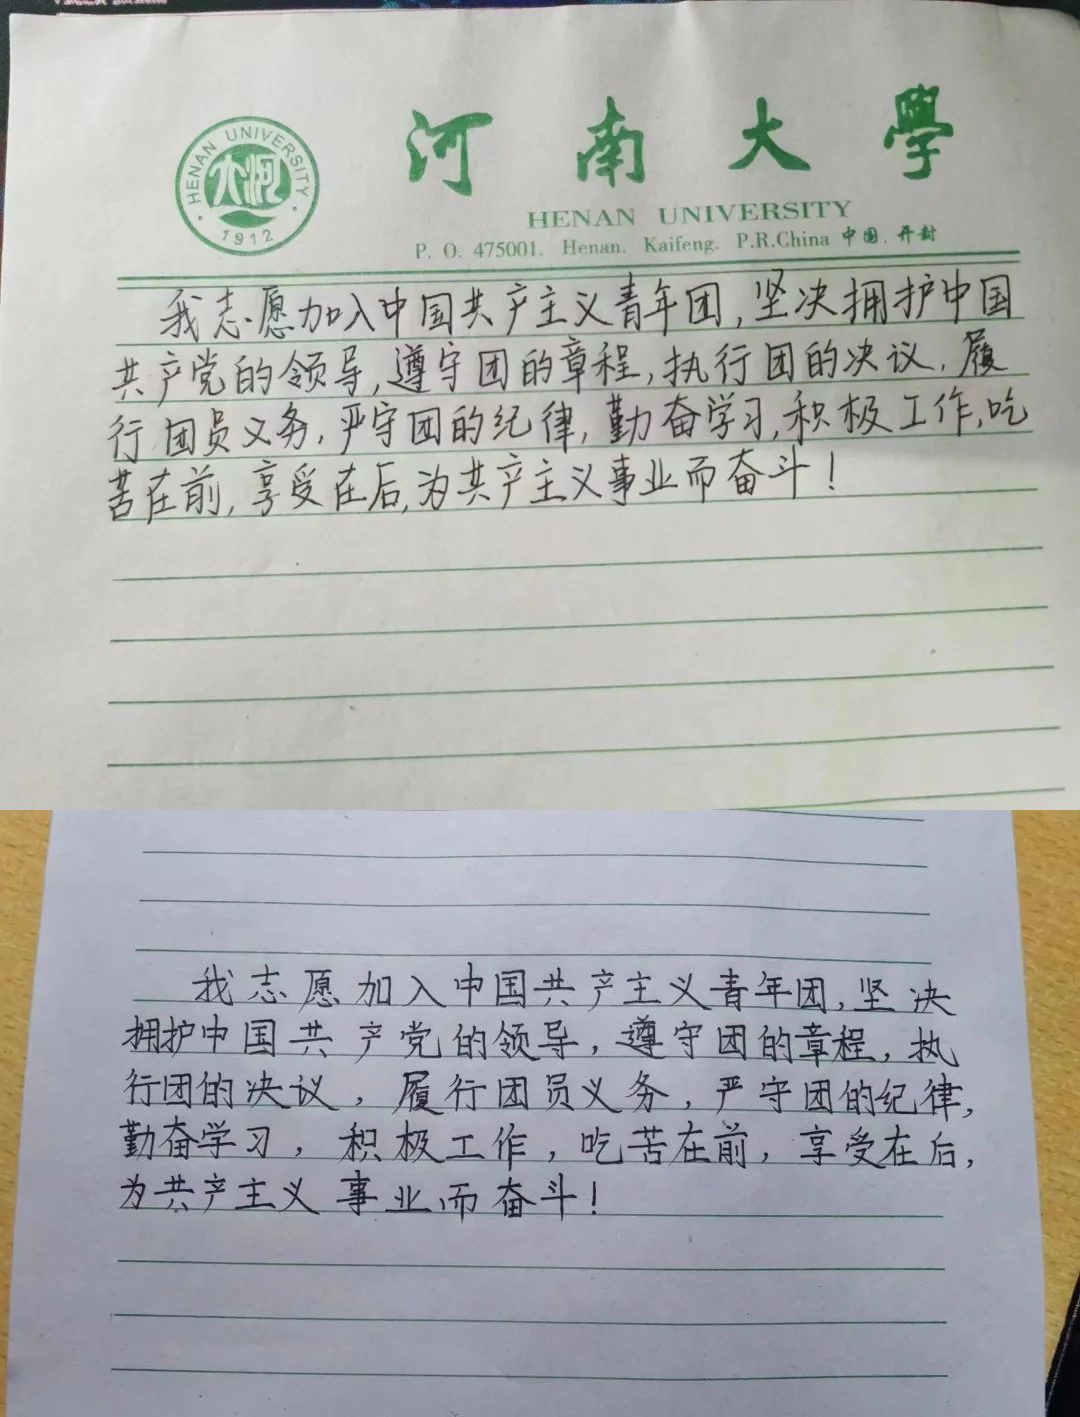 HENAN UNIVERSITY
大河
1912
河南大學
HENAN UNIVERSITY
P. O. 475001. Henan. Kaifeng. P.R.China 中国.开封
我志愿加入中国共产主义青年团,坚决拥护中国
共产党的领导,遵守团的章程,执行团的决议,履
行团员义务,严守团的纪律,勤奋学习,积极工作,吃
苦在前,享受在后,为共产主义事业而奋斗!
我志愿加入中国共产主义青年团,坚决
拥护中国共产党的领导,遵守团的章程,执
行团的决议,履行团员义务,严守团的纪律,
勤奋学习,积极工作,吃苦在前,享受在后,
为共产主义事业而奋斗!